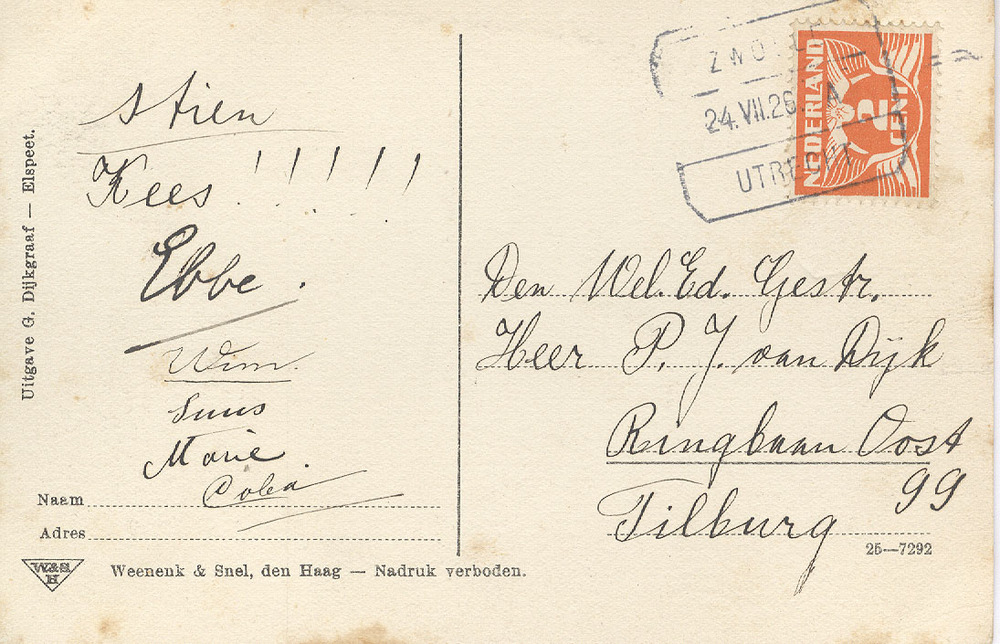 Uitgave G. Dijkgraaf — Elspeet.
Stien
Kees !!!!!
Ebbe.
Wim.
Suus
Marie
Naam
Adres
W&S
H
Weenenk & Snel, den Haag — Nadruk verboden.
ZWOLLE
24.VII.26. A
UTRECHT
NEDERLAND
2
CENT
Den Wel. Ed. Gestr.
Heer P. J. van Dijk
Ringbaan Oost
99
Tilburg
25—7292